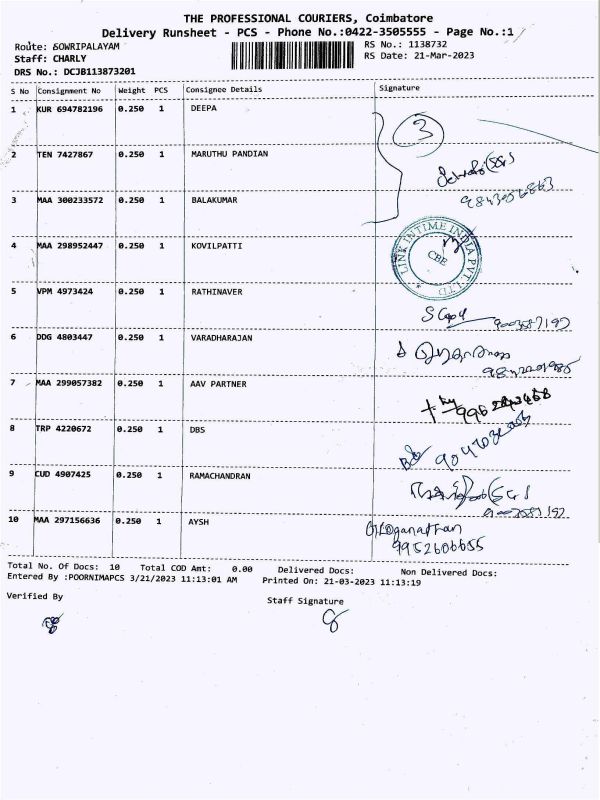 THE PROFESSIONAL COURIERS, Coimbatore
Delivery Runsheet - PCS - Phone No.:0422-3505555 - Page No.:1
Route: SOWRIPALAYAM
RS No.: 1138732
Staff: CHARLY
RS Date: 21-Mar-2023
DRS No.: DCJB113873201
S No Consignment No Weight PCS Consignee Details Signature
1 KUR 694782196 0.250 1 DEEPA
3
2 TEN 7427867 0.250 1 MARUTHU PANDIAN
3 MAA 300233572 0.250 1 BALAKUMAR
LINK INTIME INDIA PVT. LTD
CBE
4 MAA 298952447 0.250 1 KOVILPATTI
5 VPM 4973424 0.250 1 RATHINAVER
6 DDG 4803447 0.250 1 VARADHARAJAN
7 MAA 299057382 0.250 1 AAV PARTNER
8 TRP 4220672 0.250 1 DBS
9 CUD 4907425 0.250 1 RAMACHANDRAN
10 MAA 297156636 0.250 1 AYSH
9952606655
Total No. Of Docs: 10 Total COD Amt: 0.00 Delivered Docs: Non Delivered Docs:
Entered By :POORNIMAPCS 3/21/2023 11:13:01 AM Printed On: 21-03-2023 11:13:19
Verified By
Staff Signature